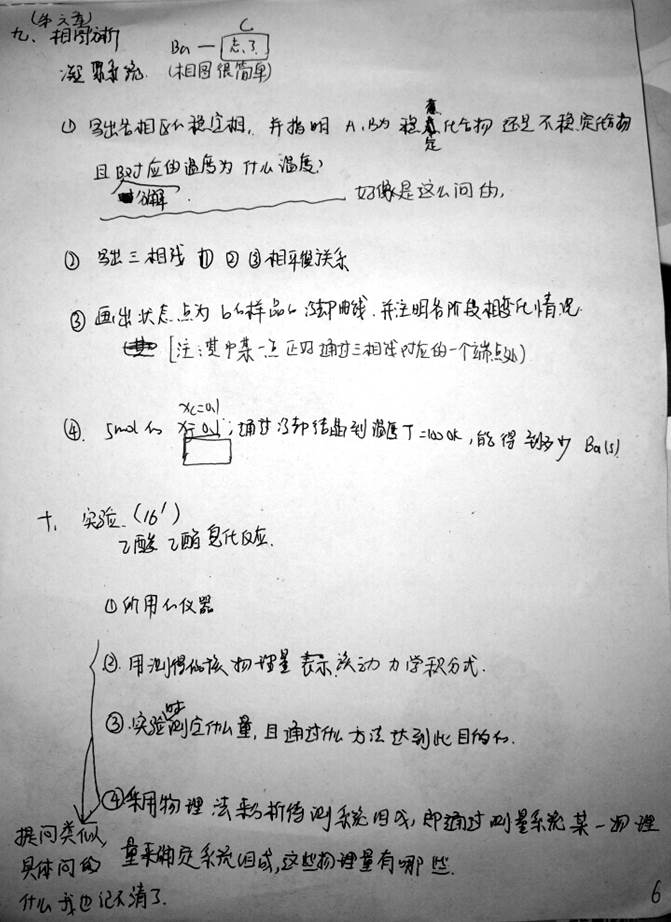 (第六章)
九、相图分析
C
Ba — 忘了
凝聚系统. (相图很简单)
① 写出各相区的稳定相, 并指明 A、B为稳定化合物还是不稳定化合物
且B对应的温度为什么温度?
分解
好像是这么问的,
② 写出三相线 ① ② ③ 相平衡关系
③ 画出状态点为b的样品的冷却曲线.并注明各阶段相变化情况.
[注:其中某一点正好通过三相线对应的一个端点处)
xc=0.1
④. 5mol的 x=0.1 ; 通过冷却结晶到温度T=1000K, 能得到多少 Ba(s)
十、 实验. (16')
乙酸乙酯皂化反应.
①所用的仪器
②. 用测得的该物理量表示该动力学积分式.
③.实验时测定什么量, 且通过什么方法达到此目的的.
④采用物理法来分析待测系统组成, 即通过测量系统某一物理
量来确定系统组成,这些物理量有哪些.
提问类似,
具体问的
什么我也记不清了.
6